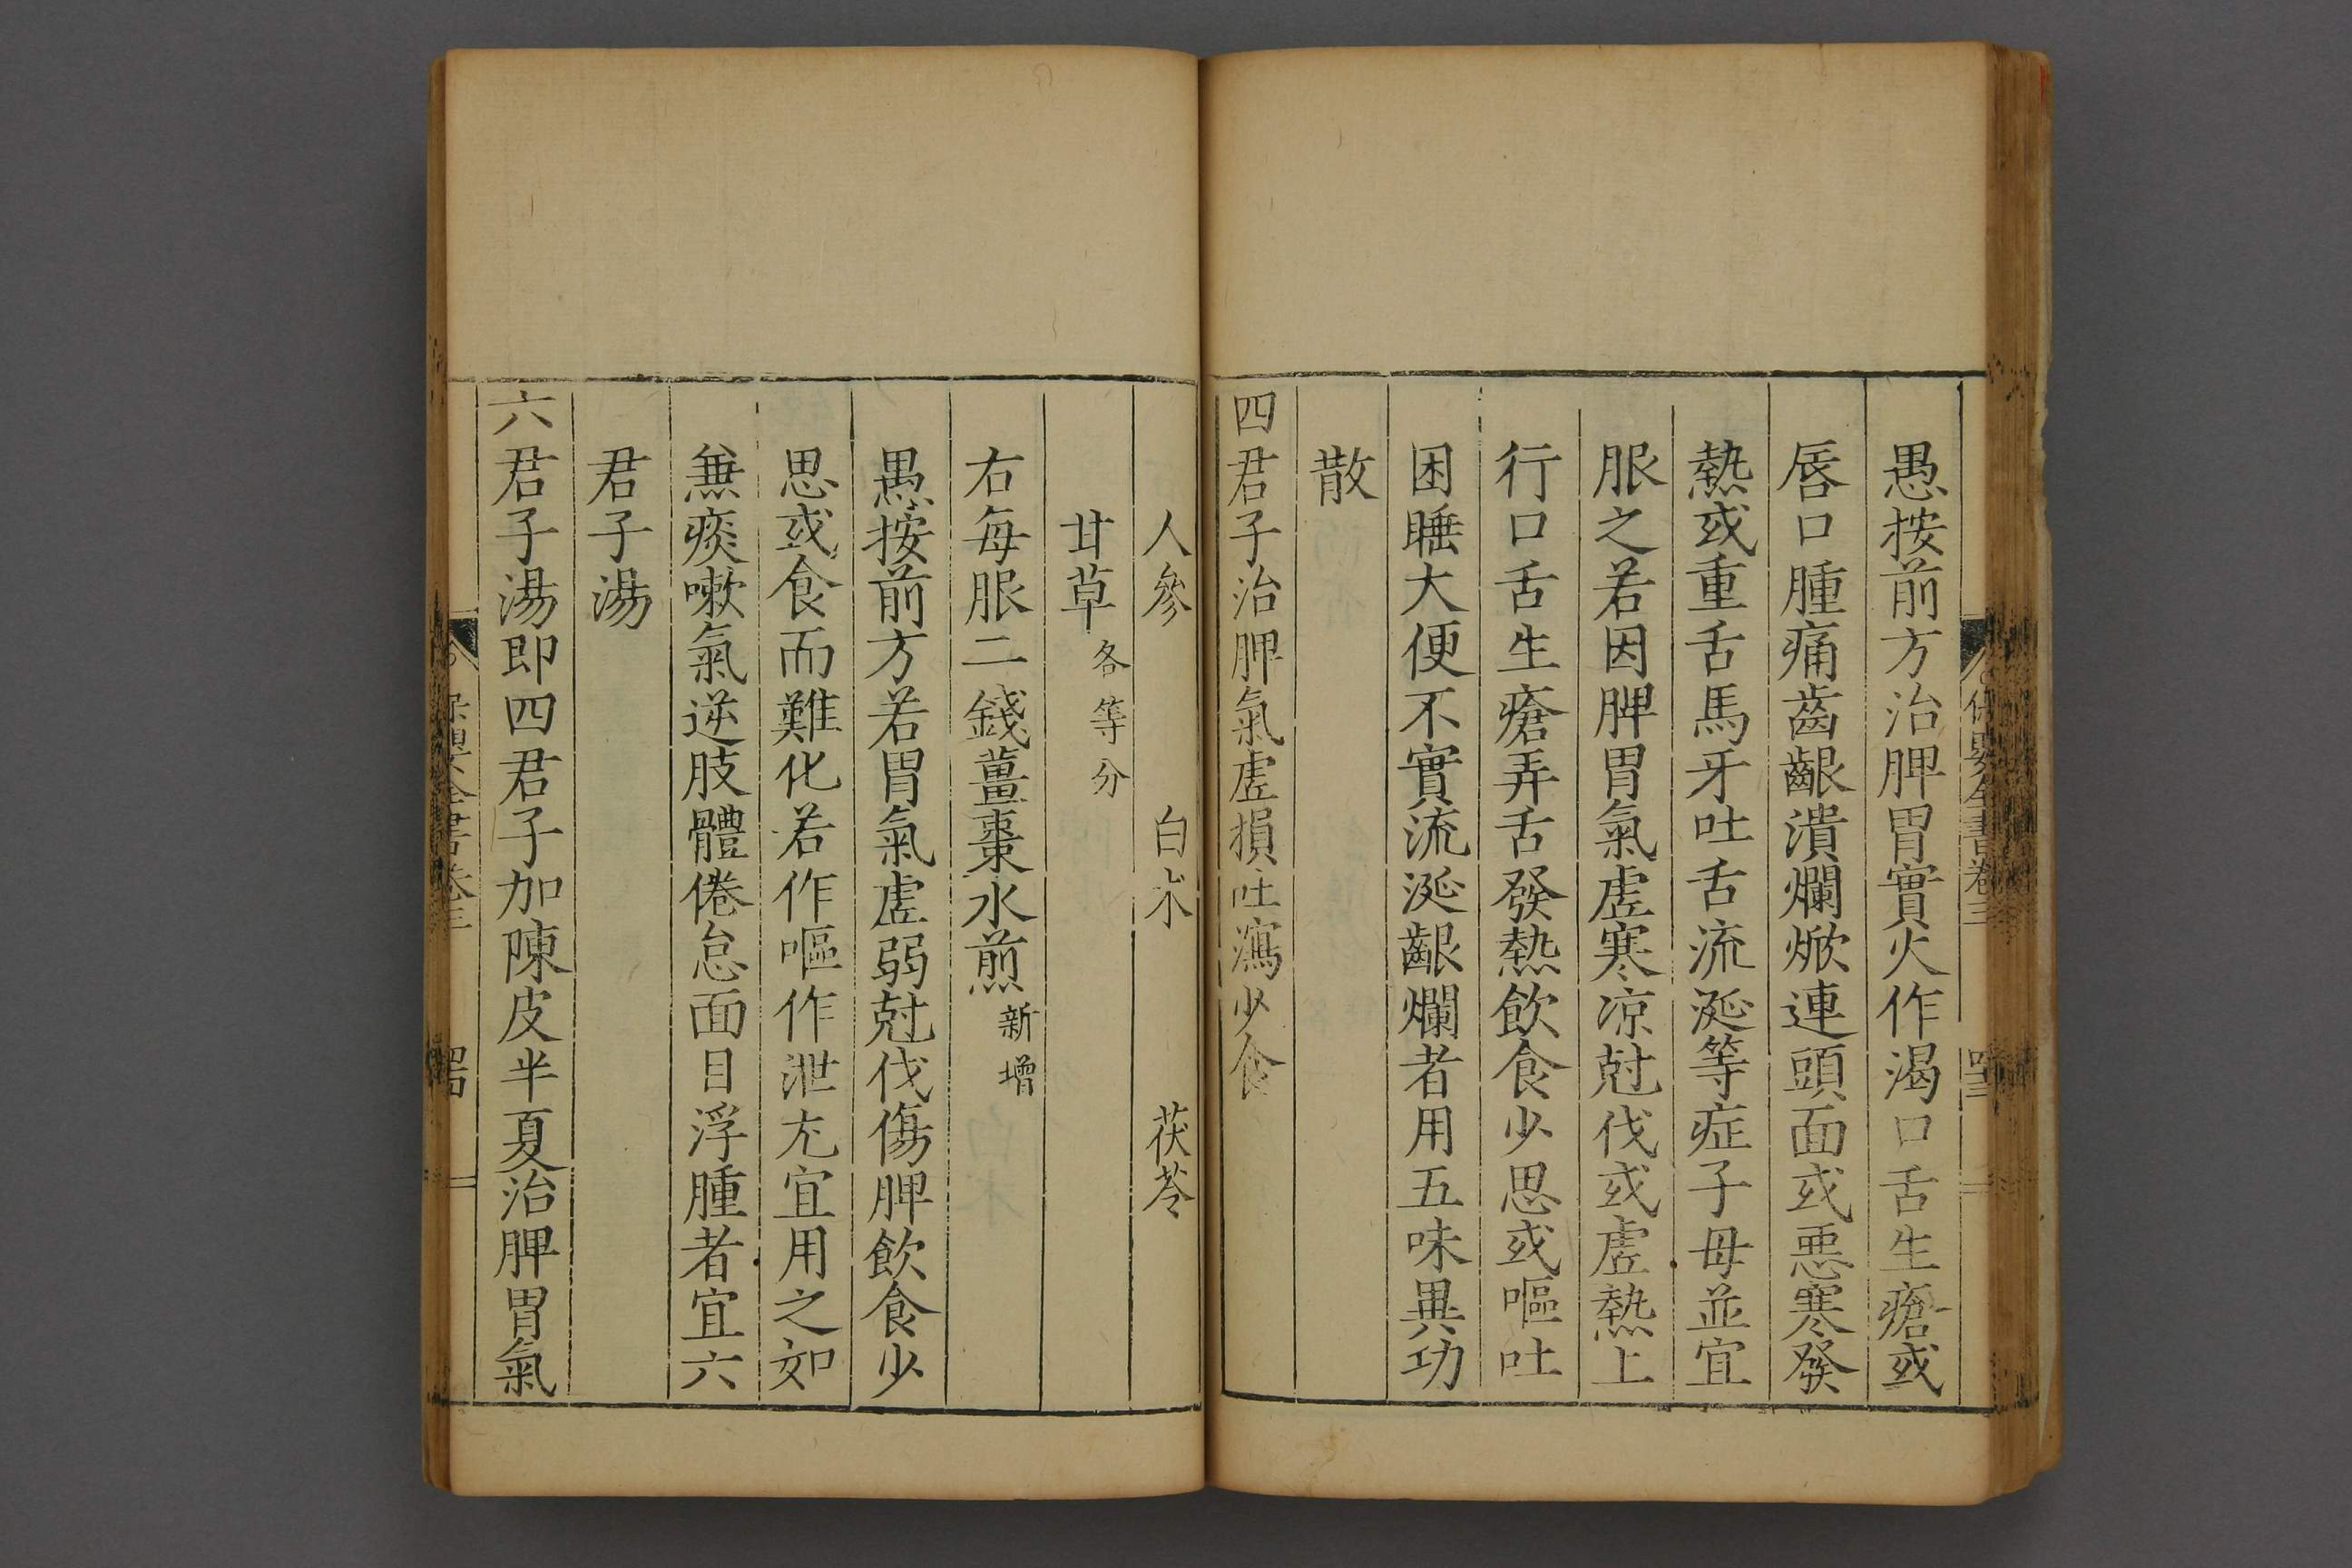 愚按前方治脾胃實火作渴口舌生瘡或
唇口腫痛齒齦潰爛焮連頭面或惡寒發
熱或重舌馬牙吐舌流涎等症子母並宜
服之若因脾胃氣虛寒凉尅伐或虛熱上
行口舌生瘡弄舌發熱飲食少思或嘔吐
困睡大便不實流涎齦爛者用五味異功
散
四君子治脾氣虛損吐瀉少食
人參 白朮 茯苓
甘草各等分
右每服二錢薑棗水煎新增
愚按前方若胃氣虛弱尅伐傷脾飲食少
思或食而難化若作嘔作泄尤宜用之如
兼痰嗽氣逆肢體倦怠面目浮腫者宜六
君子湯
六君子湯即四君子加陳皮半夏治脾胃氣